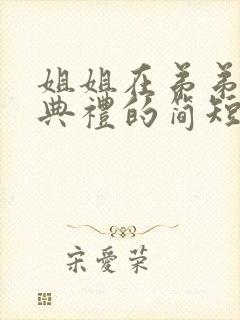 姐姐在弟弟
典禮的简短
宋愛荣